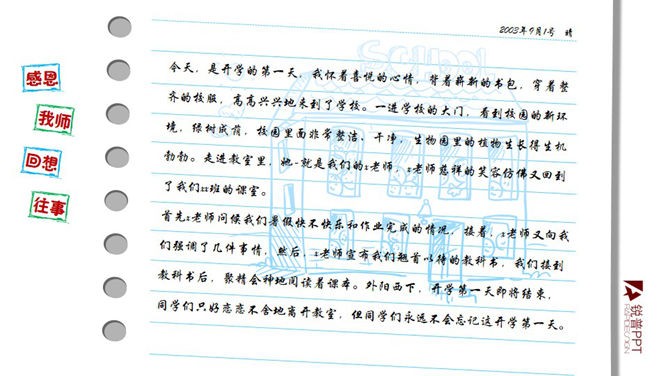 2003年9月1号 晴
SCHOOL
感恩
我师
回想
往事
今天，是开学的第一天，我怀着喜悦的心情，背着崭新的书包，穿着整
齐的校服，高高兴兴地来到了学校。一进学校的大门，看到校园的新环
境，绿树成荫，校园里面非常整洁、干净，生物园里的植物生长得生机
勃勃。走进教室里，她-就是我们的x老师，x老师慈祥的笑容仿佛又回到
了我们xx班的课室。
首先x老师问候我们暑假快不快乐和作业完成的情况，接着，x老师又向我
们强调了几件事情，然后，x老师宣布我们翘首以待的教科书，我们接到
教科书后，聚精会神地阅读着课本。外阳西下，开学第一天即将结束，
同学们只好恋恋不舍地离开教室，但同学们永远不会忘记这开学第一天。
锐普PPT